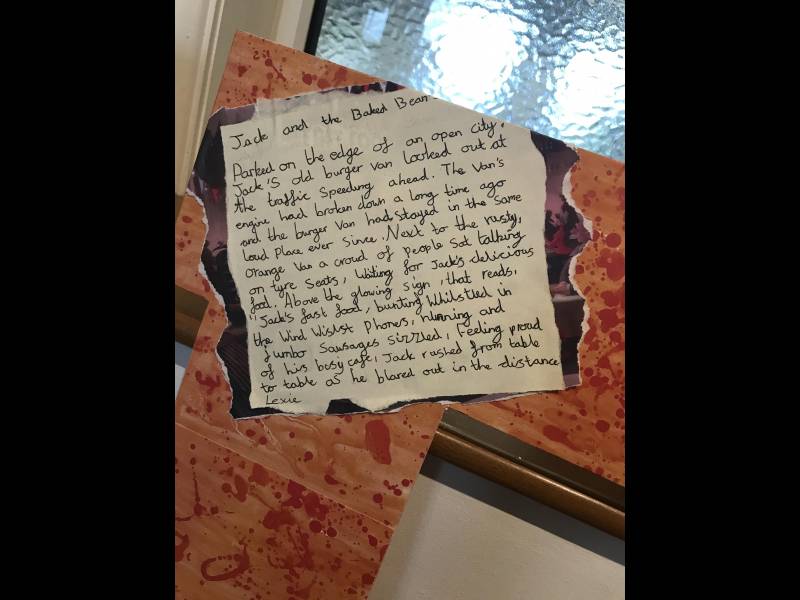 Jack and the Baked Bean
Parked on the edge of an open city,
Jack's old burger van looked out at
the traffic speeding ahead. The van's
engine had broken down a long time ago
and the burger van had stayed in the same
loud place ever since. Next to the rusty,
orange van a crowd of people sat talking
on tyre seats, waiting for Jack's delicious
food. Above the glowing sign, that reads,
"Jack's fast food, bunting Whilstled in
the wind Wislst phones, humming and
jumbo sausages sizzled, Feeling proud
of his busy cafe, Jack rushed from table
to table as he blared out in the distance
Lexie